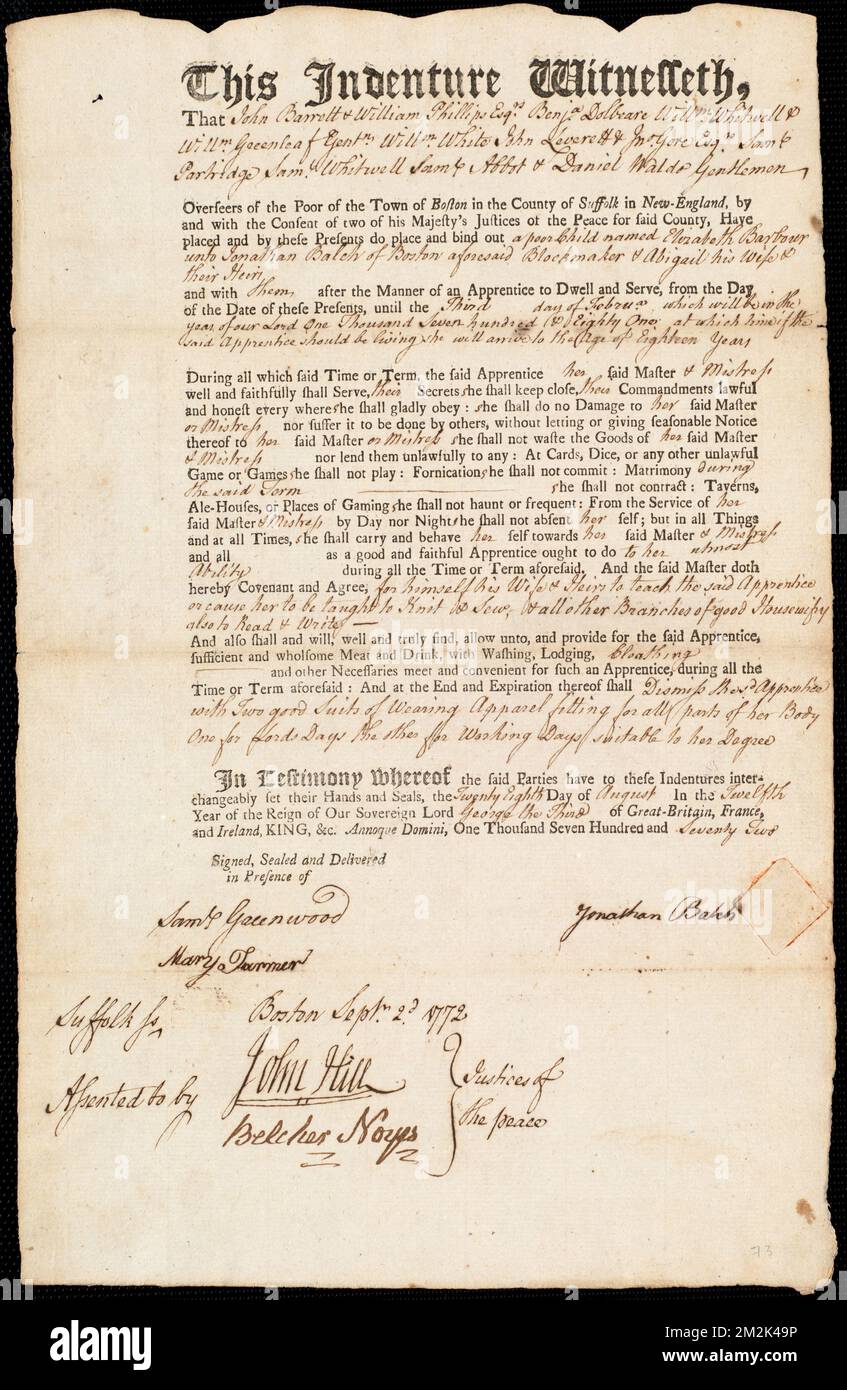 This Indenture Witnesseth,
That John Barrett & William Phillips Esqrs Benja Dolbeare Willm Whitwell &
Willm Greenleaf Gentn Willm White John Leverett & Jno Gore Esqrs Saml
Partridge Saml Whitwell Saml Abbot & Daniel Waldo Gentlemen
Overseers of the Poor of the Town of Boston in the County of Suffolk in New-England, by
and with the Consent of two of his Majesty's Justices of the Peace for said County, Have
placed and by these Presents do place and bind out a poor Child named Elizabeth Barbour
unto Jonathan Balch of Boston aforesaid Blockmaker & Abigail his Wife &
their Heirs
and with them after the Manner of an Apprentice to Dwell and Serve, from the Day
of the Date of these Presents, until the Third day of Februa which will be in the
year of our Lord One Thousand Seven hundred & Eighty One, at which time if the
said Apprentice should be living she will arrive to the Age of Eighteen Years
During all which said Time or Term, the said Apprentice her said Master & Mistress
well and faithfully shall Serve, their Secrets she shall keep close, their Commandments lawful
and honest every where she shall gladly obey: she shall do no Damage to her said Master
or Mistress nor suffer it to be done by others, without letting or giving seasonable Notice
thereof to her said Master or Mistress she shall not waste the Goods of her said Master
& Mistress nor lend them unlawfully to any: At Cards, Dice, or any other unlawful
Game or Games she shall not play: Fornication she shall not commit: Matrimony during
the said Term she shall not contract: Taverns,
Ale-Houses, or Places of Gaming she shall not haunt or frequent: From the Service of her
said Master & Mistress by Day nor Night she shall not absent her self; but in all Things
and at all Times, she shall carry and behave her self towards her said Master & Mistress
and all as a good and faithful Apprentice ought to do to her utmost
Ability during all the Time or Term aforesaid. And the said Master doth
hereby Covenant and Agree, for himself his Wife & Heirs to teach the said Apprentice
or cause her to be taught to Knit & Sew, & all other Branches of good Housewifry
also to Read & Write
And also shall and will, well and truly find, allow unto, and provide for the said Apprentice,
sufficient and wholsome Meat and Drink, with Washing, Lodging, Cloathing
and other Necessaries meet and convenient for such an Apprentice, during all the
Time or Term aforesaid: And at the End and Expiration thereof shall Dismiss the sd Apprentice
with Two good Suits of Wearing Apparel fitting for all parts of her Body
One for Lords Days the other for Working Days suitable to her Degree
In Testimony Whereof the said Parties have to these Indentures inter-
changeably set their Hands and Seals, the Twenty Eighth Day of August In the Twelfth
Year of the Reign of Our Sovereign Lord George the Third of Great-Britain, France,
and Ireland, KING, &c. Annoque Domini, One Thousand Seven Hundred and Seventy Two
Signed, Sealed and Delivered
in Presence of
Saml Greenwood
Jonathan Balch
Mary Turner
Suffolk ss
Boston Septr 2d 1772
Assented to by
John Hill
Belcher Noyes
Justices of
the peace
73
alamy
Image ID: 2M2K49P
www.alamy.com